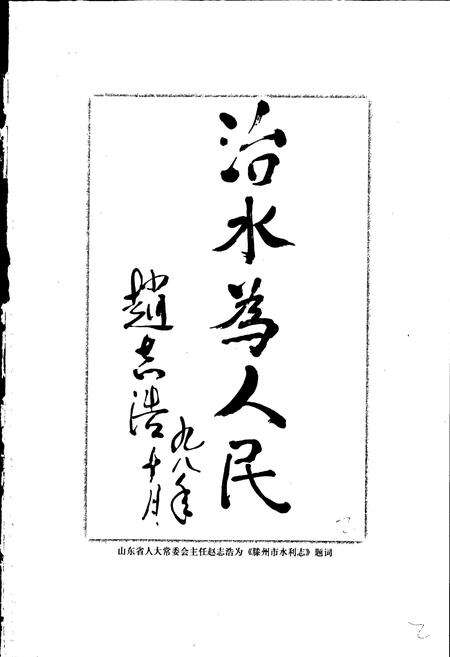 治水為人民
趙志浩
九八年
十月
山东省人大常委会主任赵志浩为《滕州市水利志》题词